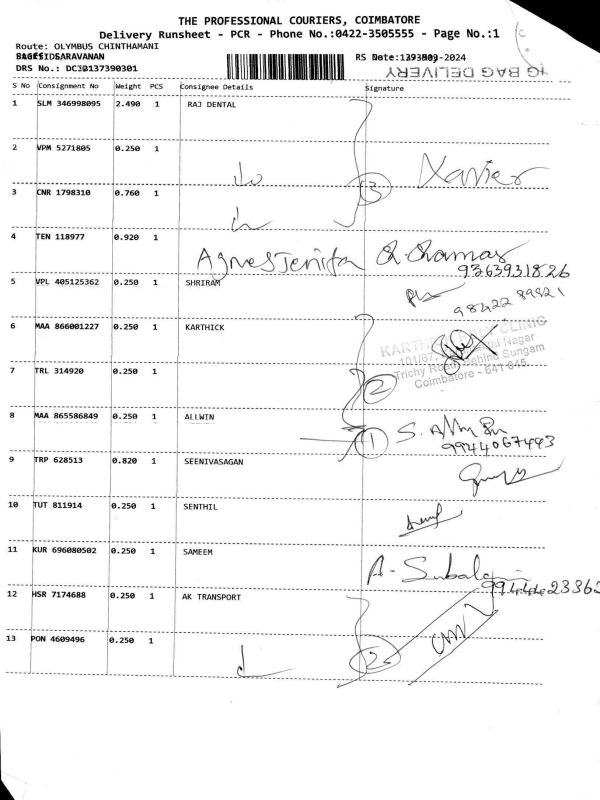 THE PROFESSIONAL COURIERS, COIMBATORE
Delivery Runsheet - PCR - Phone No.:0422-3505555 - Page No.:1
Route: OLYMBUS CHINTHAMANI
SARAVANAN RS
DRS No.: DC30137390301
BAG DELIVERY
S No Consignment No Weight PCS Consignee Details Signature
1 SLM 346998095 2.490 1 RAJ DENTAL
2 VPM 5271805 0.250 1
3 Xavier
3 CNR 1798310 0.760 1
4 TEN 118977 0.920 1
Agnes Jenifa
9363931826
5 VPL 405125362 0.250 1 SHRIRAM
98422 89921
6 MAA 866001227 0.250 1 KARTHICK
CLINIC
Nagar
Trichy Road, Behind Sungam
Coimbatore - 641 045.
7 TRL 314920 0.250 1
2
8 MAA 865586849 0.250 1 ALLWIN
1
9944067493
9 TRP 628513 0.820 1 SEENIVASAGAN
10 TUT 811914 0.250 1 SENTHIL
11 KUR 696080502 0.250 1 SAMEEM
12 HSR 7174688 0.250 1 AK TRANSPORT
13 PON 4609496 0.250 1
2